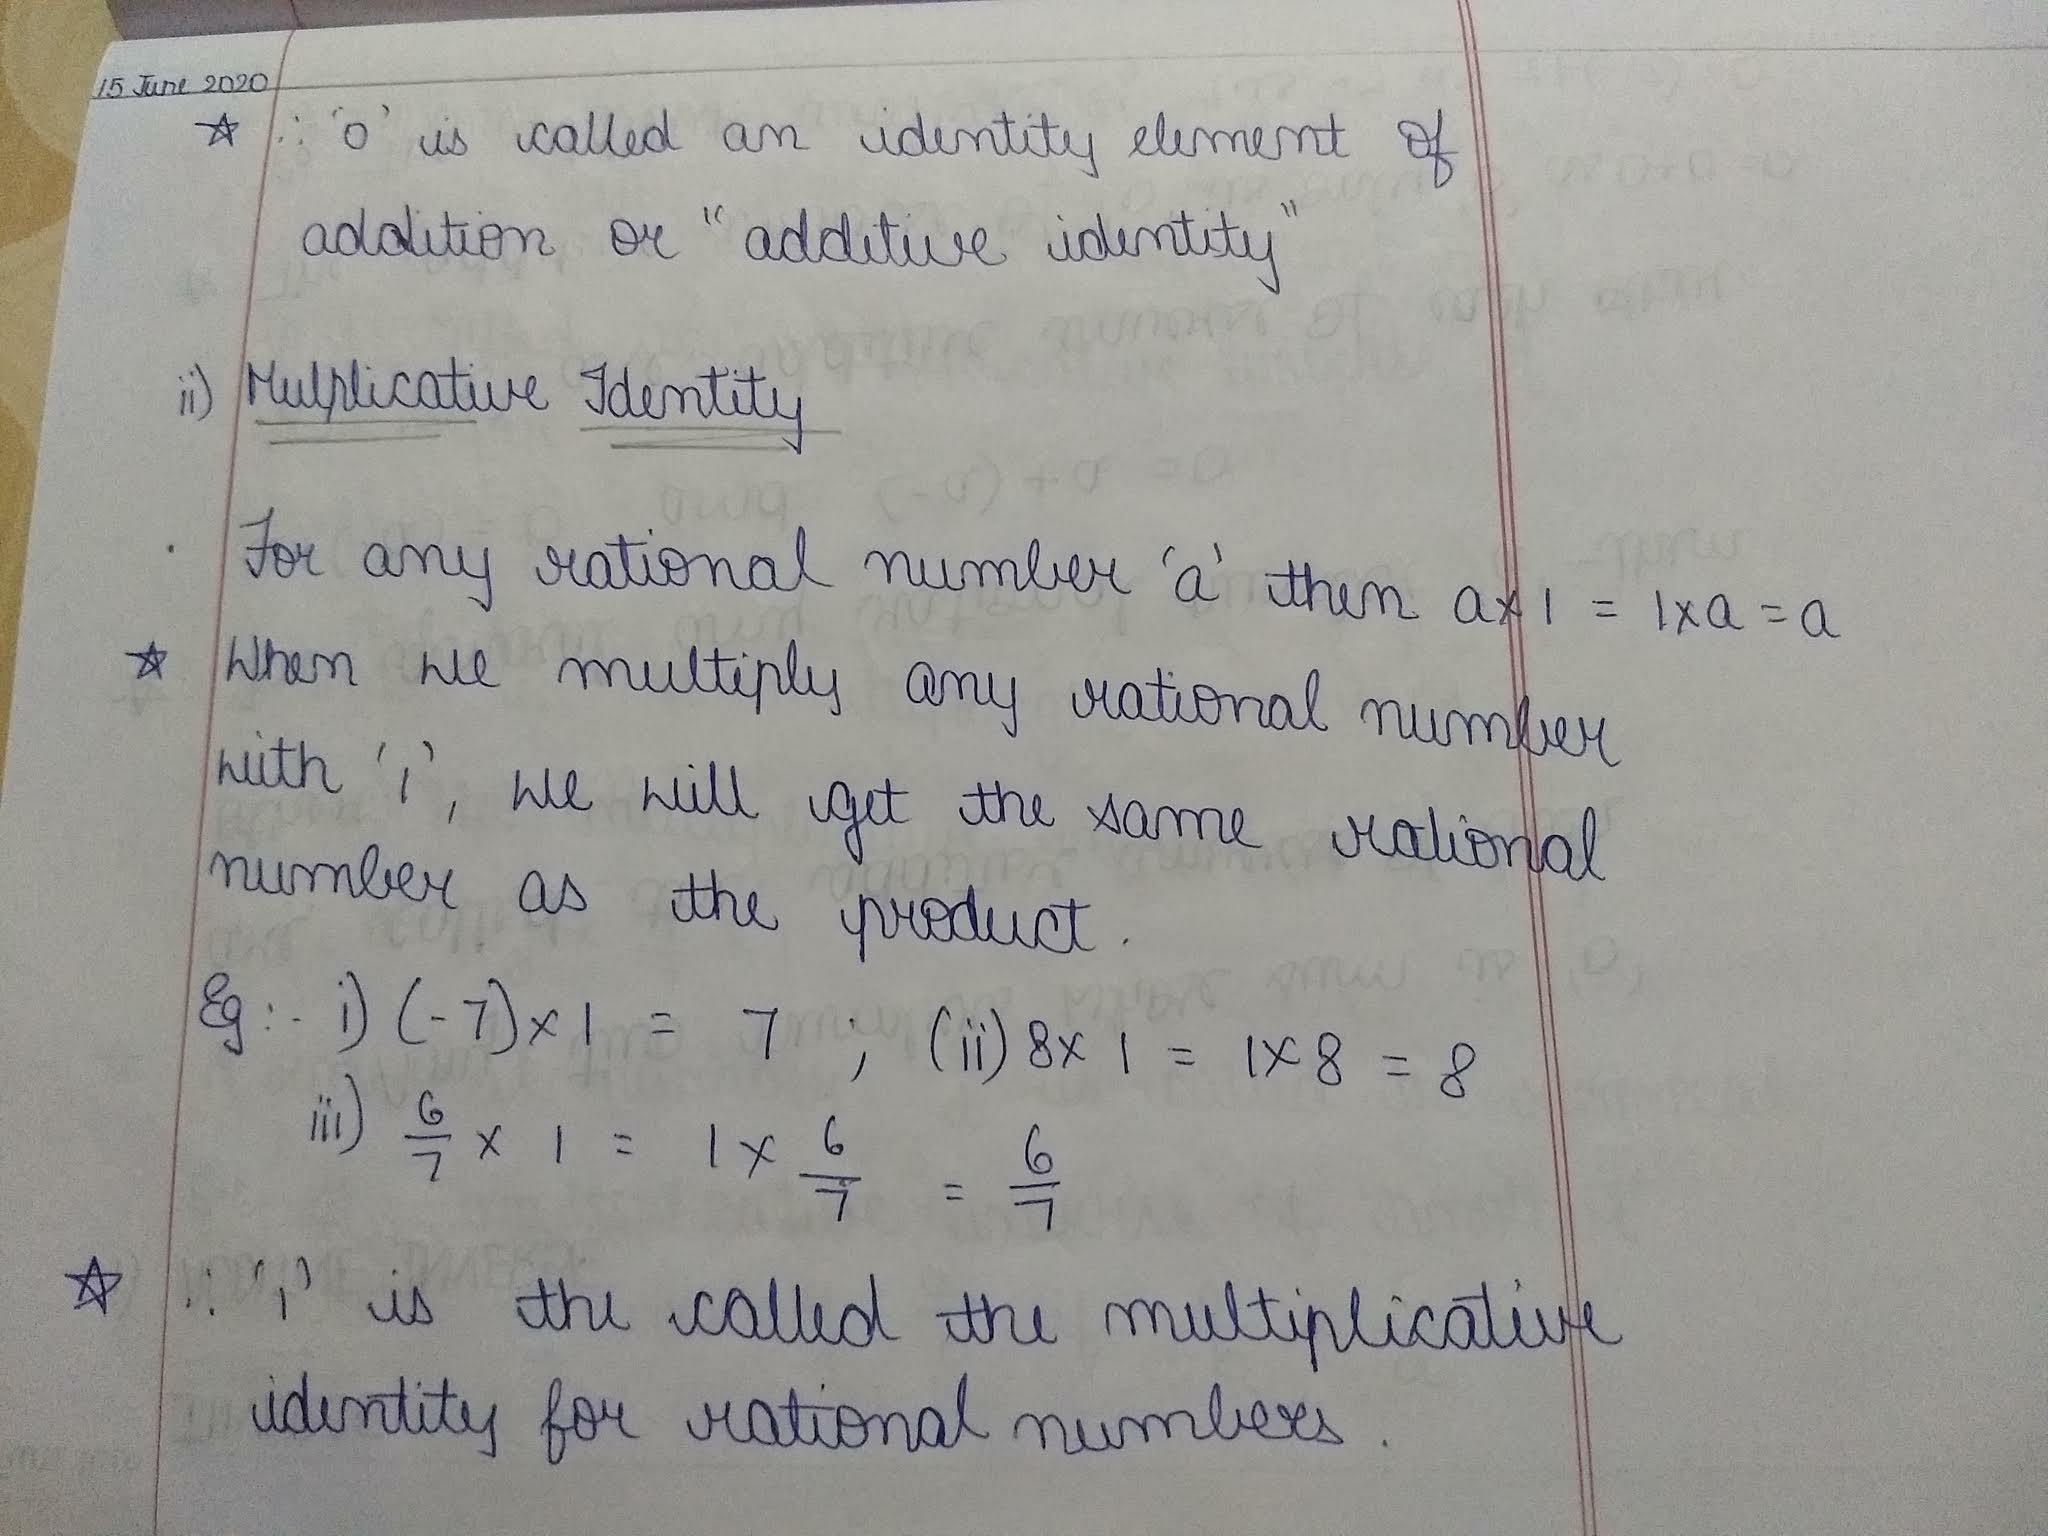 15 June 2020
☆ ∴ '0' is called an identity element of
addition or "additive identity"
ii) Mulplicative Identity
· For any rational number 'a' then a×1 = 1×a = a
☆ When we multiply any rational number
with '1', we will get the same rational
number as the product.
Eg:- i) (-7)×1 = 7 ; (ii) 8×1 = 1×8 = 8
iii) 6/7 × 1 = 1 × 6/7 = 6/7
☆ ∴ '1' is the called the multiplicative
identity for rational numbers.